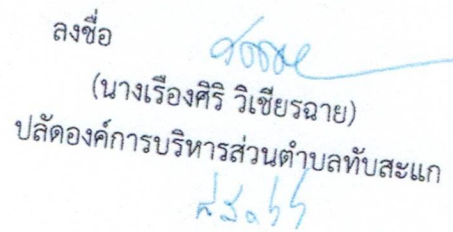 ลงชื่อ
(นางเรืองศิริ วิเชียรฉาย)
ปลัดองค์การบริหารส่วนตำบลทับสะแก